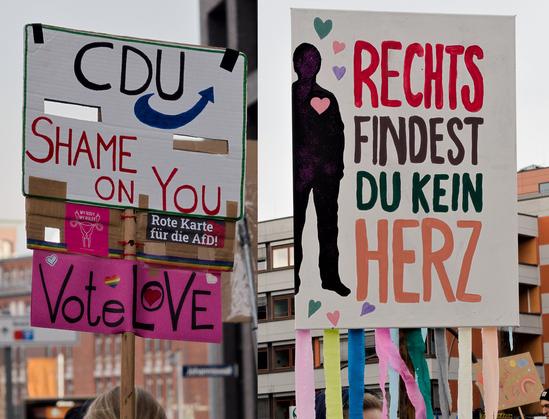 CDU
SHAME
ON YOU
MY BODY
MY RULES!
Rote Karte
für die AfD!
Vote LOVE
RECHTS
FINDEST
DU KEIN
HERZ